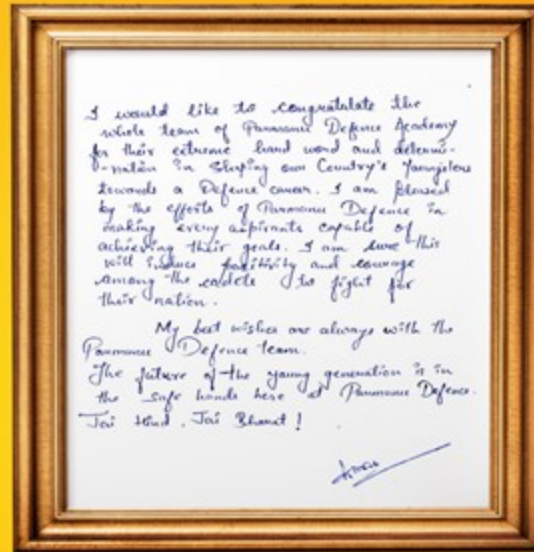 I would like to congratulate the
whole team of Parmanu Defence Academy
for their extreme hard word and determi-
-nation in Shaping our Country's Youngsters
towards a Defence career. I am pleased
by the efforts of Parmanu Defence in
making every aspirants capable of
achieving their goals. I am sure this
will induce positivity and courage
among the cadets to fight for
their nation.
My best wishes are always with the
Parmanu Defence team.
The future of the young generation is in
the safe hands here at Parmanu Defence.
Jai Hind, Jai Bharat!